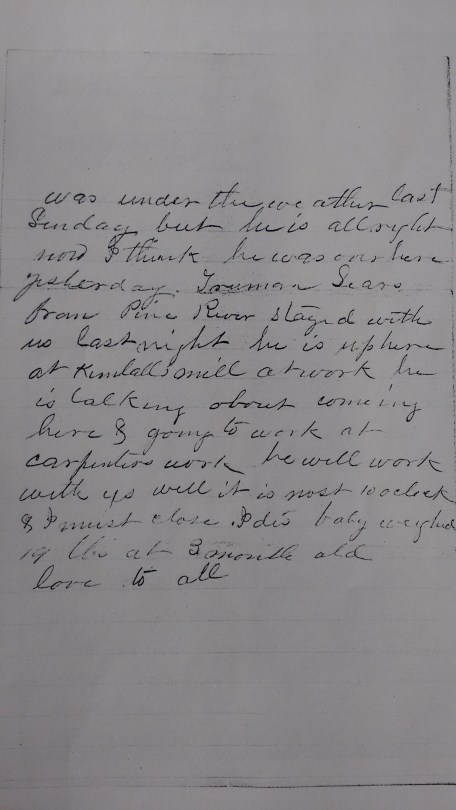 was under the weather last
Sunday but he is all right
now I think he was over here
yesterday. Truman Sears
from Pine River stayed with
us last night he is up here
at Kimballs mill at work he
is talking about comeing
here & going to work at
carpenters work he will work
with us well it is most 10 oclock
& I must close. baby weighed
19 lbs at 3 months old
love to all